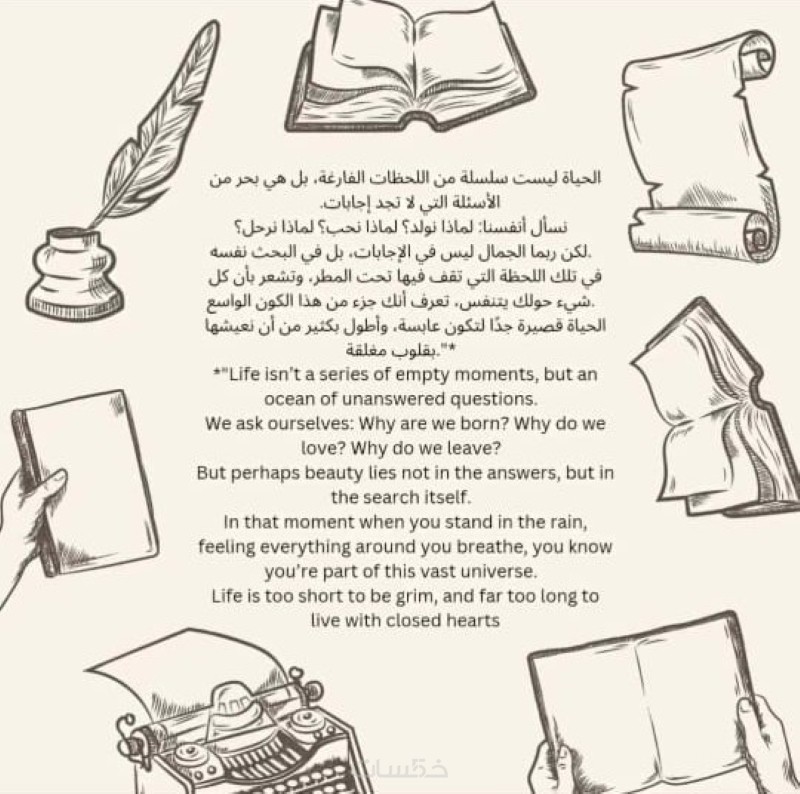 الحياة ليست سلسلة من اللحظات الفارغة، بل هي بحر من
الأسئلة التي لا تجد إجابات.
نسأل أنفسنا: لماذا نولد؟ لماذا نحب؟ لماذا نرحل؟
.لكن ربما الجمال ليس في الإجابات، بل في البحث نفسه
في تلك اللحظة التي تقف فيها تحت المطر، وتشعر بأن كل
.شيء حولك يتنفس، تعرف أنك جزء من هذا الكون الواسع
الحياة قصيرة جدًا لتكون عابسة، وأطول بكثير من أن نعيشها
بقلوب مغلقة."*
*"Life isn't a series of empty moments, but an
ocean of unanswered questions.
We ask ourselves: Why are we born? Why do we
love? Why do we leave?
But perhaps beauty lies not in the answers, but in
the search itself.
In that moment when you stand in the rain,
feeling everything around you breathe, you know
you're part of this vast universe.
Life is too short to be grim, and far too long to
live with closed hearts
خمسات